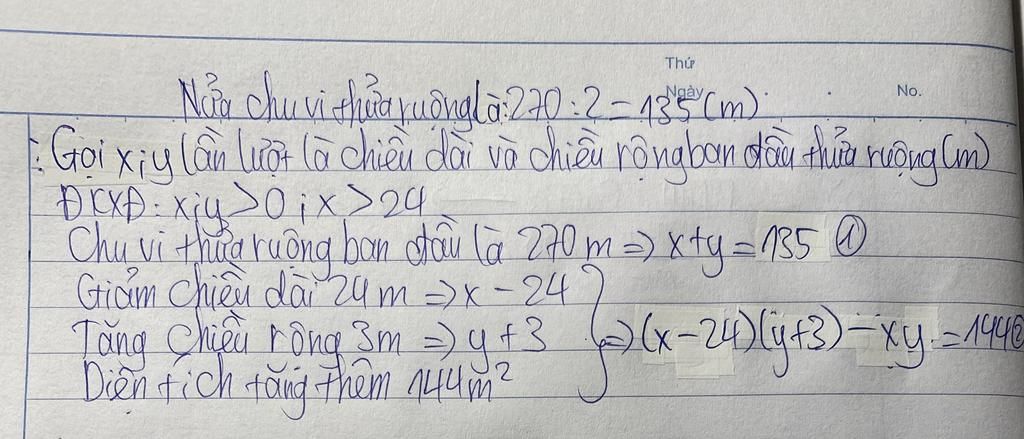 Thứ
Ngày No.
Nửa chu vi thửa ruộng là: 270 : 2 = 135 (m)
: Gọi x; y lần lượt là chiều dài và chiều rộng ban đầu thửa ruộng (m)
ĐKXĐ: x; y > 0; x > 24
Chu vi thửa ruộng ban đầu là 270 m => x + y = 135 ①
Giảm chiều dài 24 m => x - 24
Tăng chiều rộng 3m => y + 3 } => (x - 24)(y + 3) - xy = 144 ②
Diện tích tăng thêm 144m²